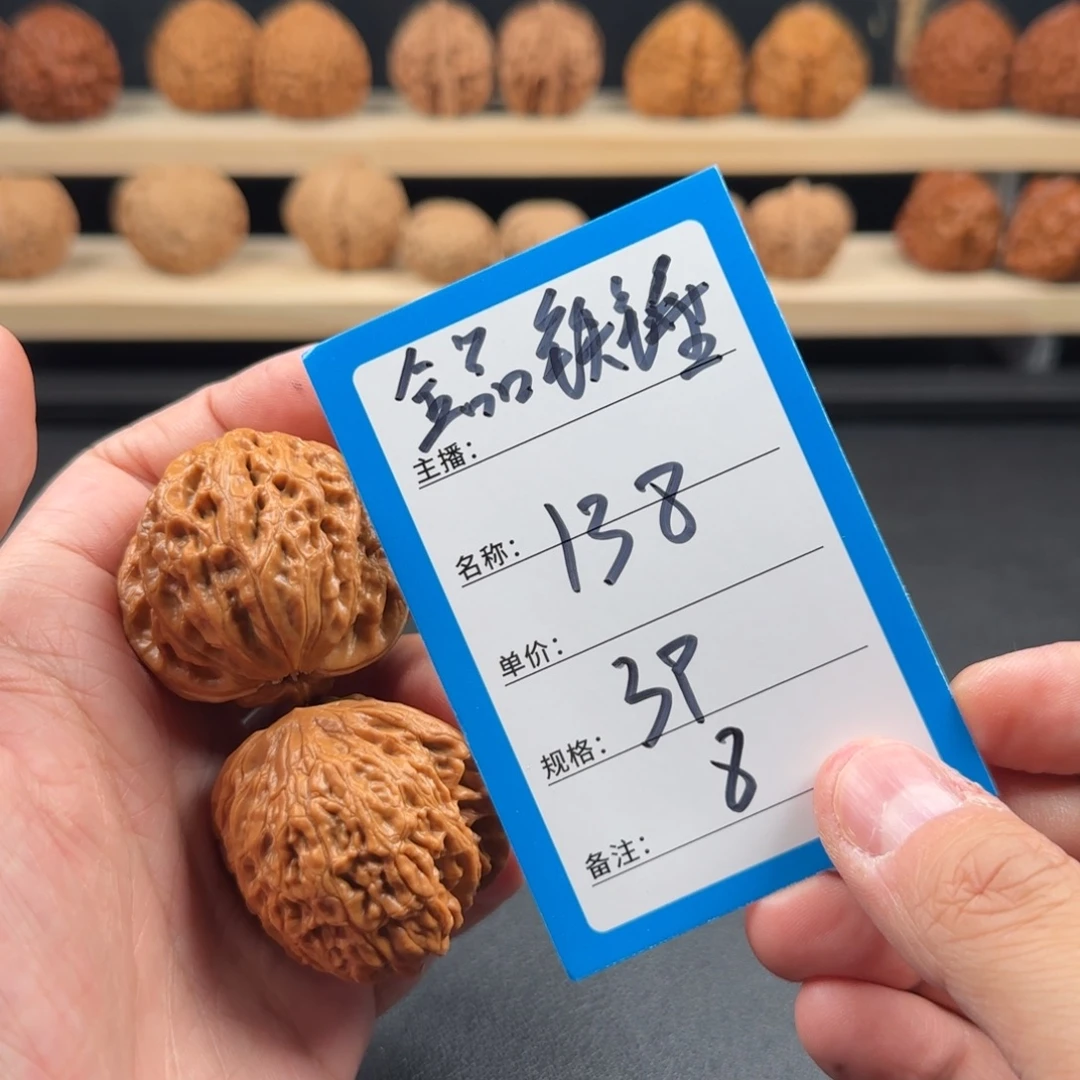 金品铁锤
主播：
138
名称：
单价：
3P
规格：
8
备注：